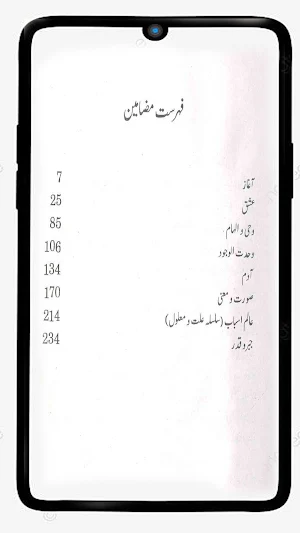 فہرست مضامین
آغاز 7
عشق 25
وحی و الہام 85
وحدت الوجود 106
آدم 134
صورت و معنی 170
عالم اسباب (سلسلہ علت و معلول) 214
جبر و قدر 234